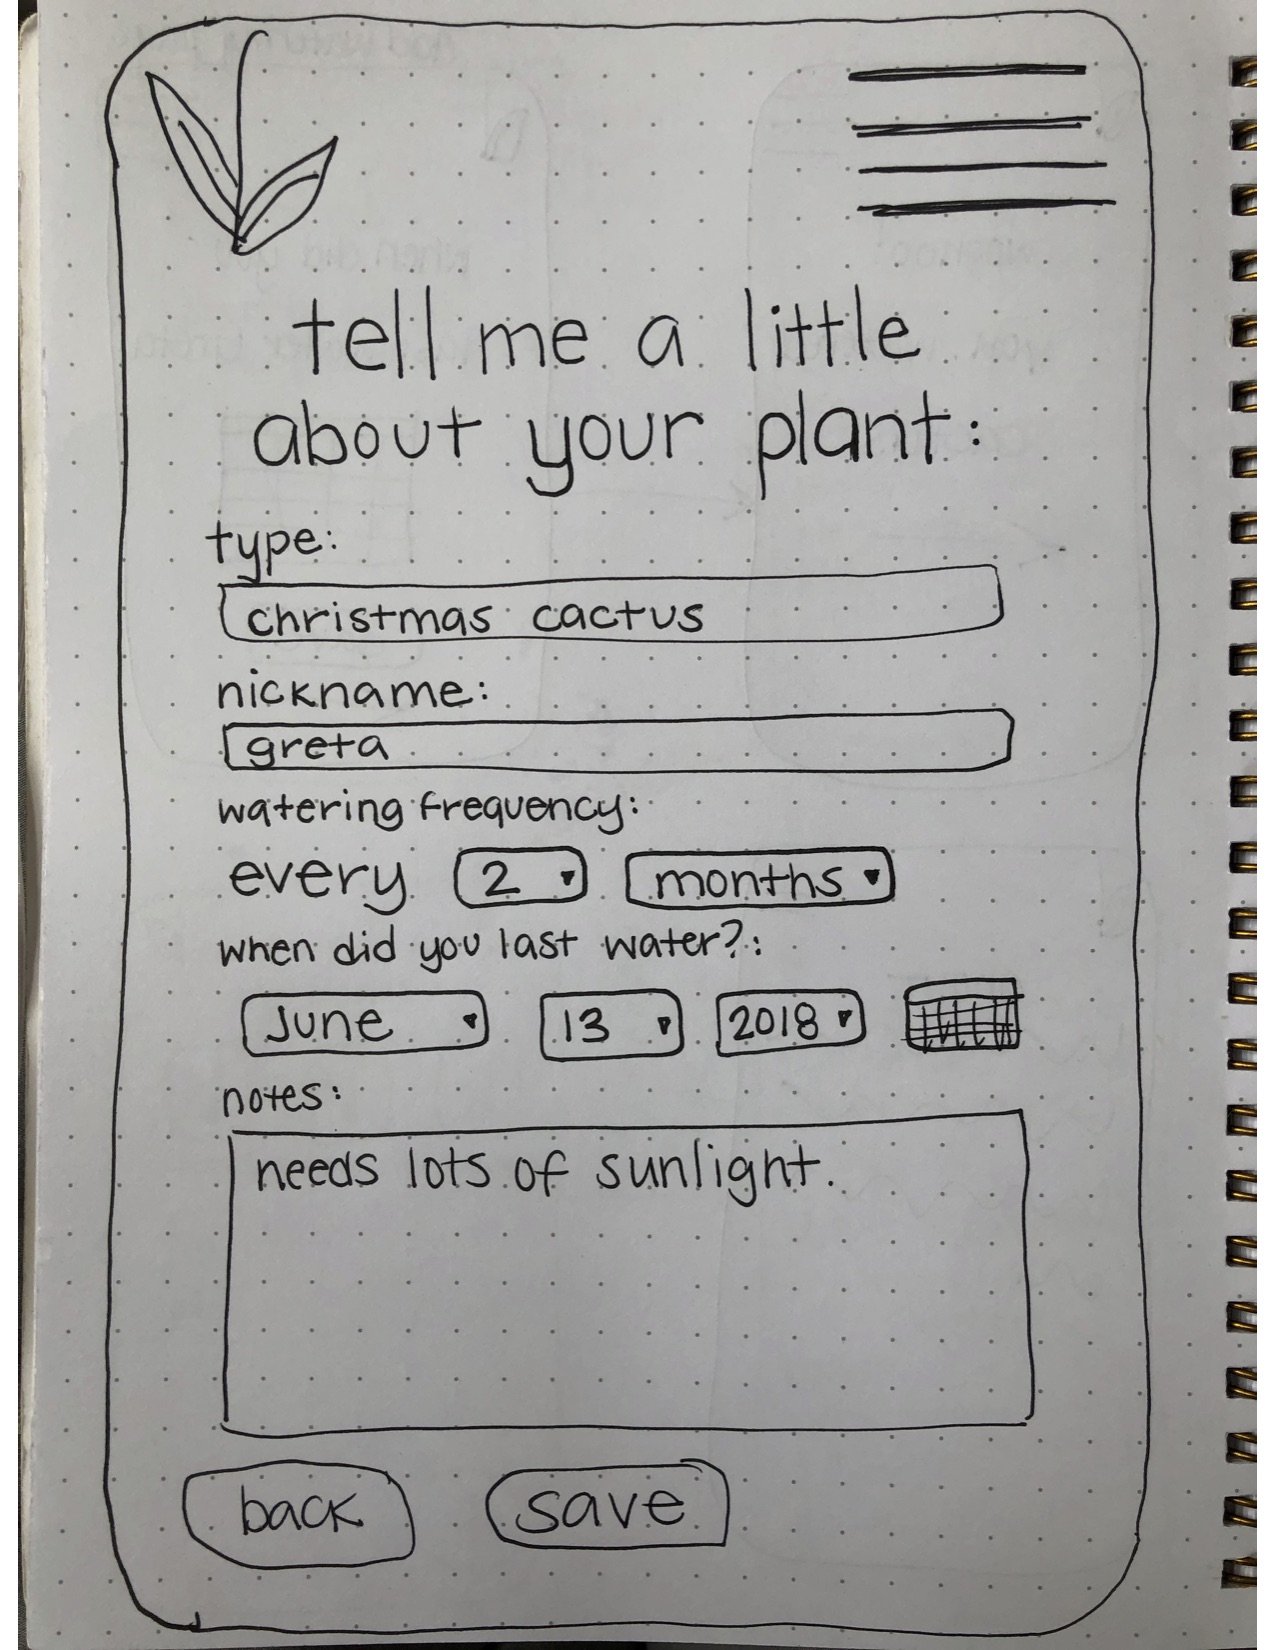 tell me a little
about your plant:
type:
christmas cactus
nickname:
greta
watering frequency:
every 2 months
when did you last water?:
June 13 2018
notes:
needs lots of sunlight.
back save